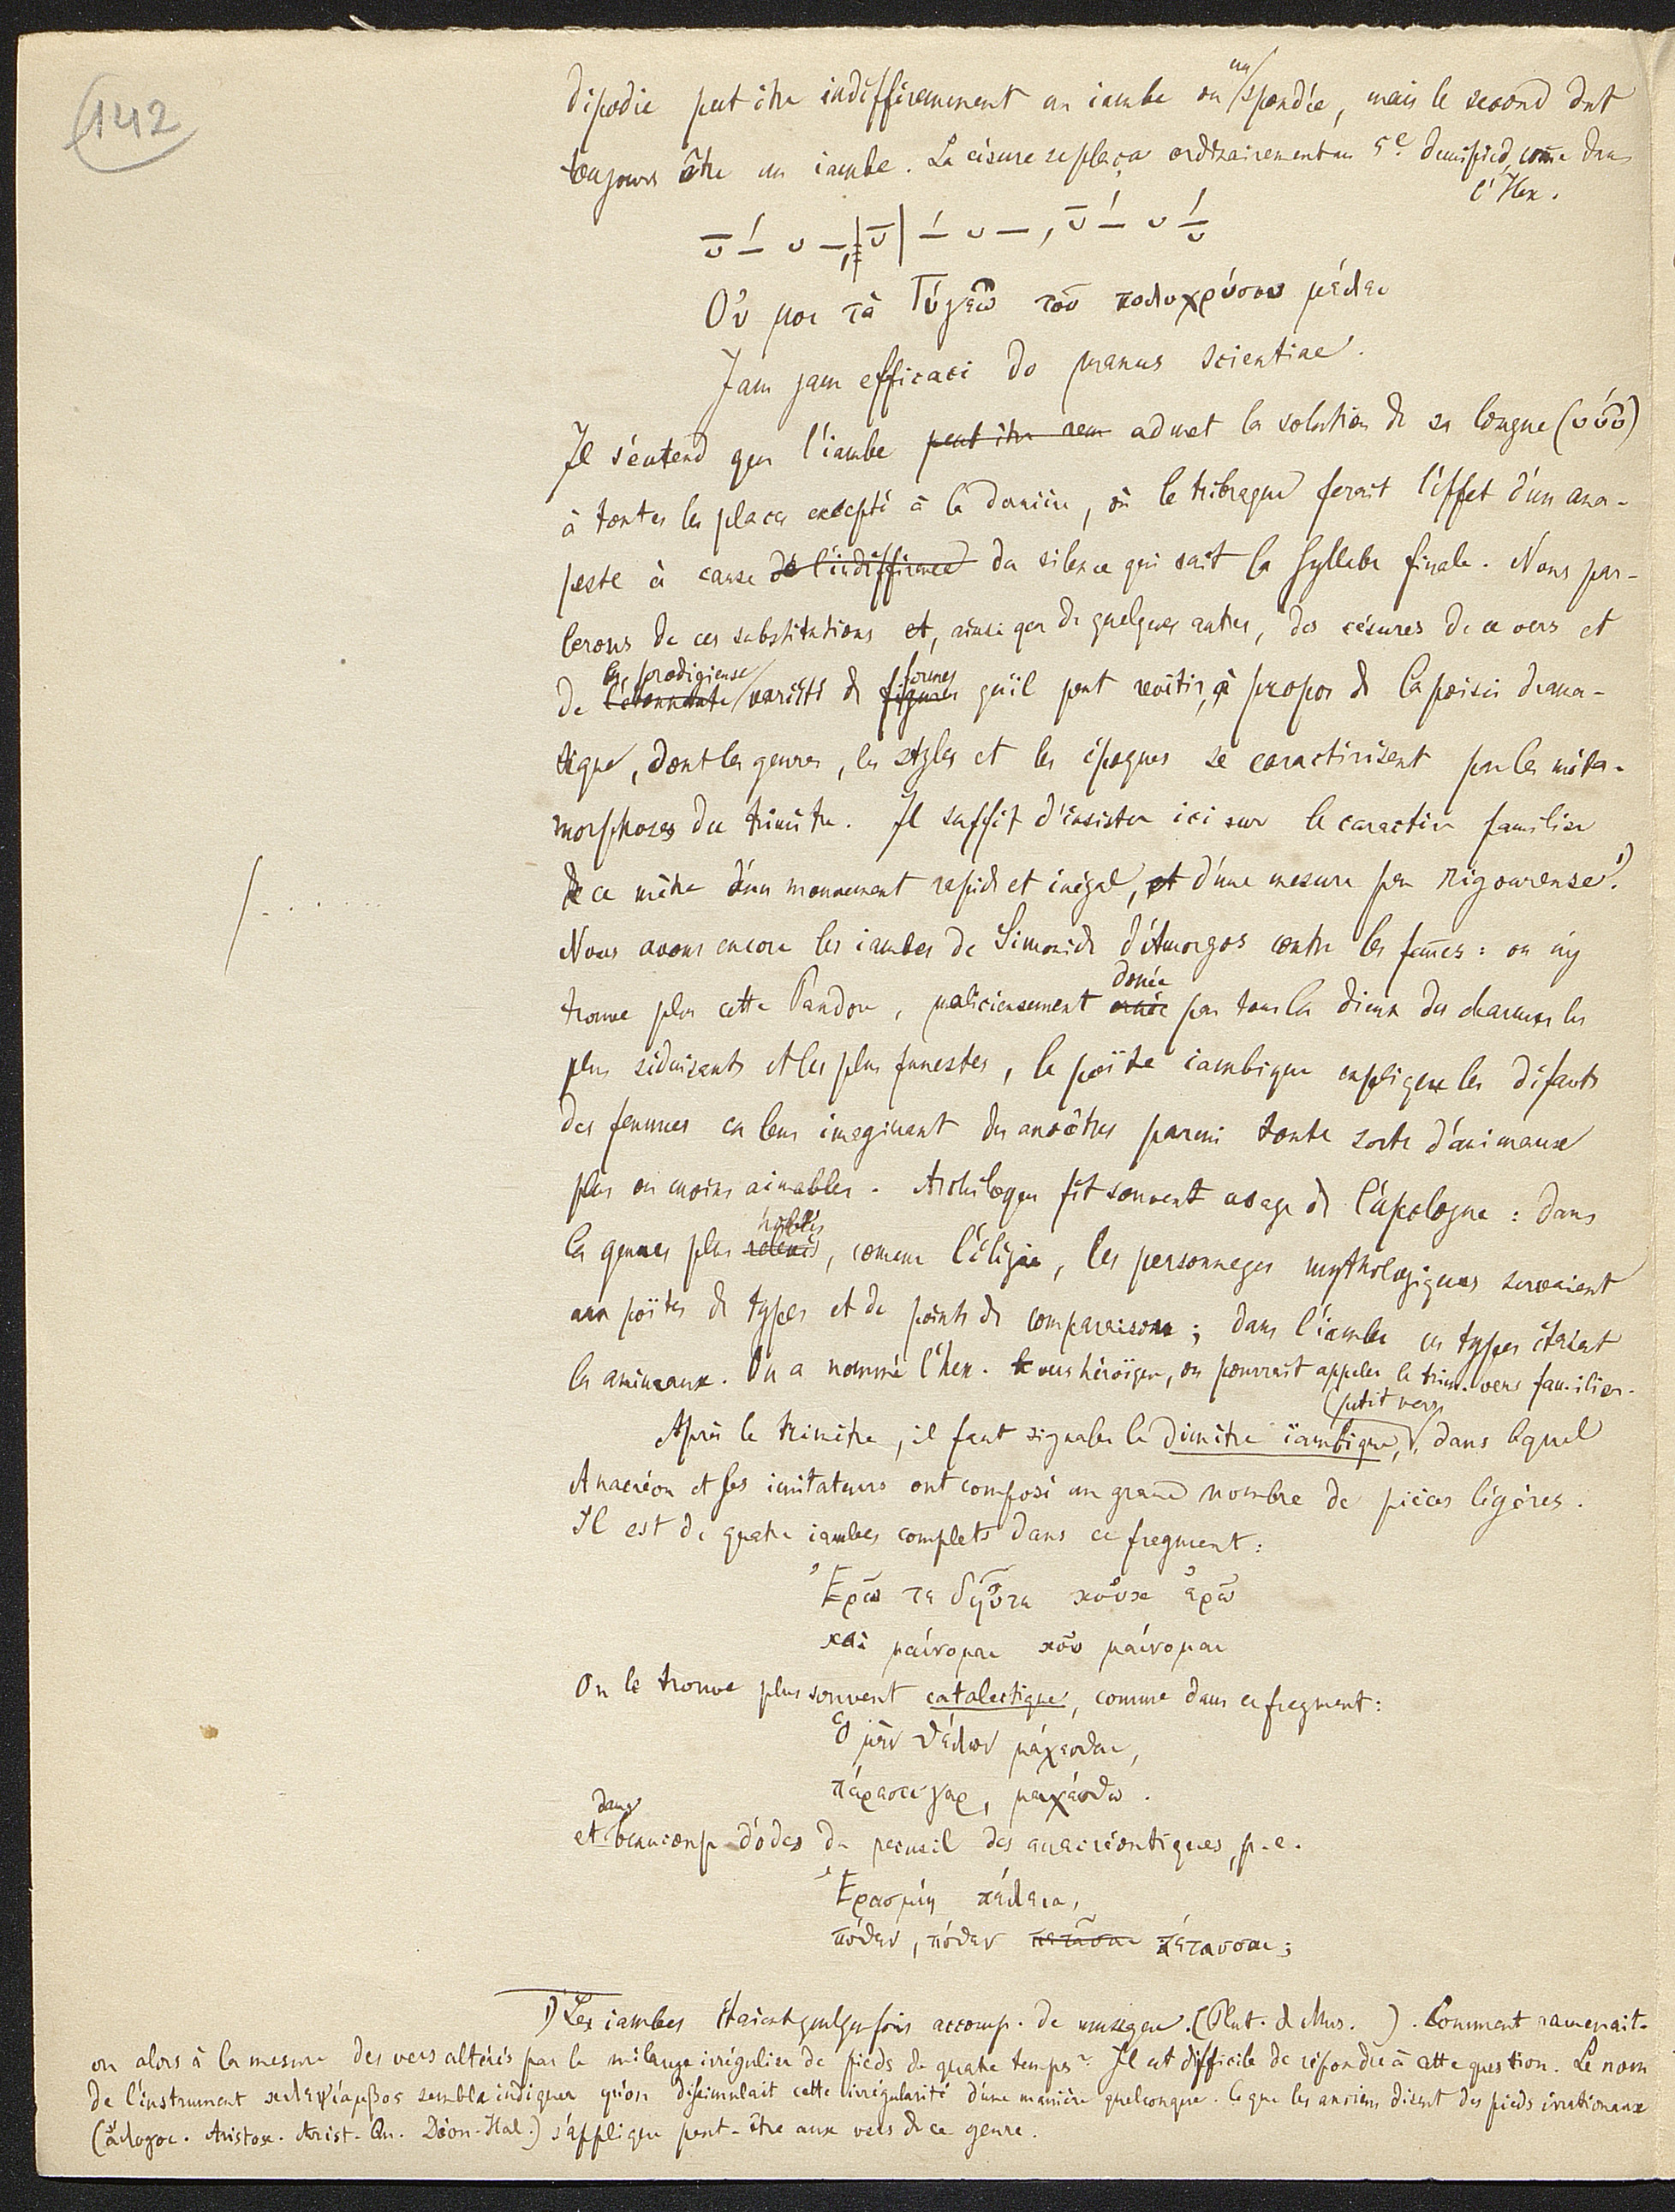 142
dipodie peut être indifféremment un iambe ou un spondée, mais le second doit
toujours être un iambe. La césure se plaça ordinairement au 5e demi-pied, come dans
l'Hex.
Οὔ μοι τὰ Γύγεω τοῦ πολυχρύσου μέλει
Jam jam efficaci do manus scientiae.
Il s'entend que l'iambe peut être rem admet la solution de sa longue (υύυ)
à toutes les places excepté à la dernière, où le tribraque ferait l'effet d'un ana-
peste à cause de l'indifférence du silence qui suit la syllabe finale. Nous par-
lerons de ces substitutions et, ainsi que de quelques autres, des césures de ce vers et
de l'étonnante la prodigieuse variété de figures formes qu'il peut revêtir, à propos de la poésie drama-
tique, dont les genres, les styles et les époques se caractérisent par les méta-
morphoses du trimètre. Il suffit d'insister ici sur le caractère familier
de ce mètre d'un mouvement rapide et inégal, et d'une mesure peu rigoureuse.1)
Nous avons encore les iambes de Simonide d'Amorgos contre les femes : on n'y
trouve plus cette Pandore, malicieusement ornée donée par tous les dieux des charmes les
plus séduisants et les plus funestes, le poëte iambique explique les défauts
des femmes en leur imaginant des ancêtres parmi toute sorte d'animaux
plus ou moins aimables. Archiloque fit souvent usage de l'apologue : dans
les genres plus relevés nobles, comme l'élégie, les personnages mythologiques servaient
aux poëtes de types et de points de comparaison ; dans l'iambe ces types étaient
les animaux. On a nommé l'hex. le vers héroïque, on pourrait appeler le trim. vers familier.
Après le trimètre, il faut signaler le dimètre ïambique, (petit vers) dans lequel
Anacréon et ses imitateurs ont composé un grand nombre de pièces légères.
Il est de quatre iambes complets dans ce fragment :
Ἐρῶ τε δηὖτε κοὐκ ἐρῶ
καὶ μαίνομαι κοὐ μαίνομαι
On le trouve plus souvent catalectique, comme dans ce fragment :
Ὁ μὲν θέλων μάχεσθαι,
πάρεστι γὰρ, μαχέσθω.
et dans beaucoup d'odes du recueil des anacréontiques, p.e.
Ἐρασμίη πέλεια,
πόθεν, πόθεν πετᾶσαι πέτασσαι;
1) Les iambes étaient quelquefois accomp. de musique. (Plut. de Mus. ). Comment ramenait-
on alors à la mesure des vers altérés par le mélange irrégulier de pieds de quatre temps? Il est difficile de répondre à cette question. Le nom
de l'instrument κλεψίαμβος semble indiquer qu'on dissimulait cette irrégularité d'une manière quelconque. Ce que les anciens disent des pieds irrationaux
(ἄλογοι. Aristox. Arist. Qu. Dion-Hal.) s'applique peut-être aux vers de ce genre.